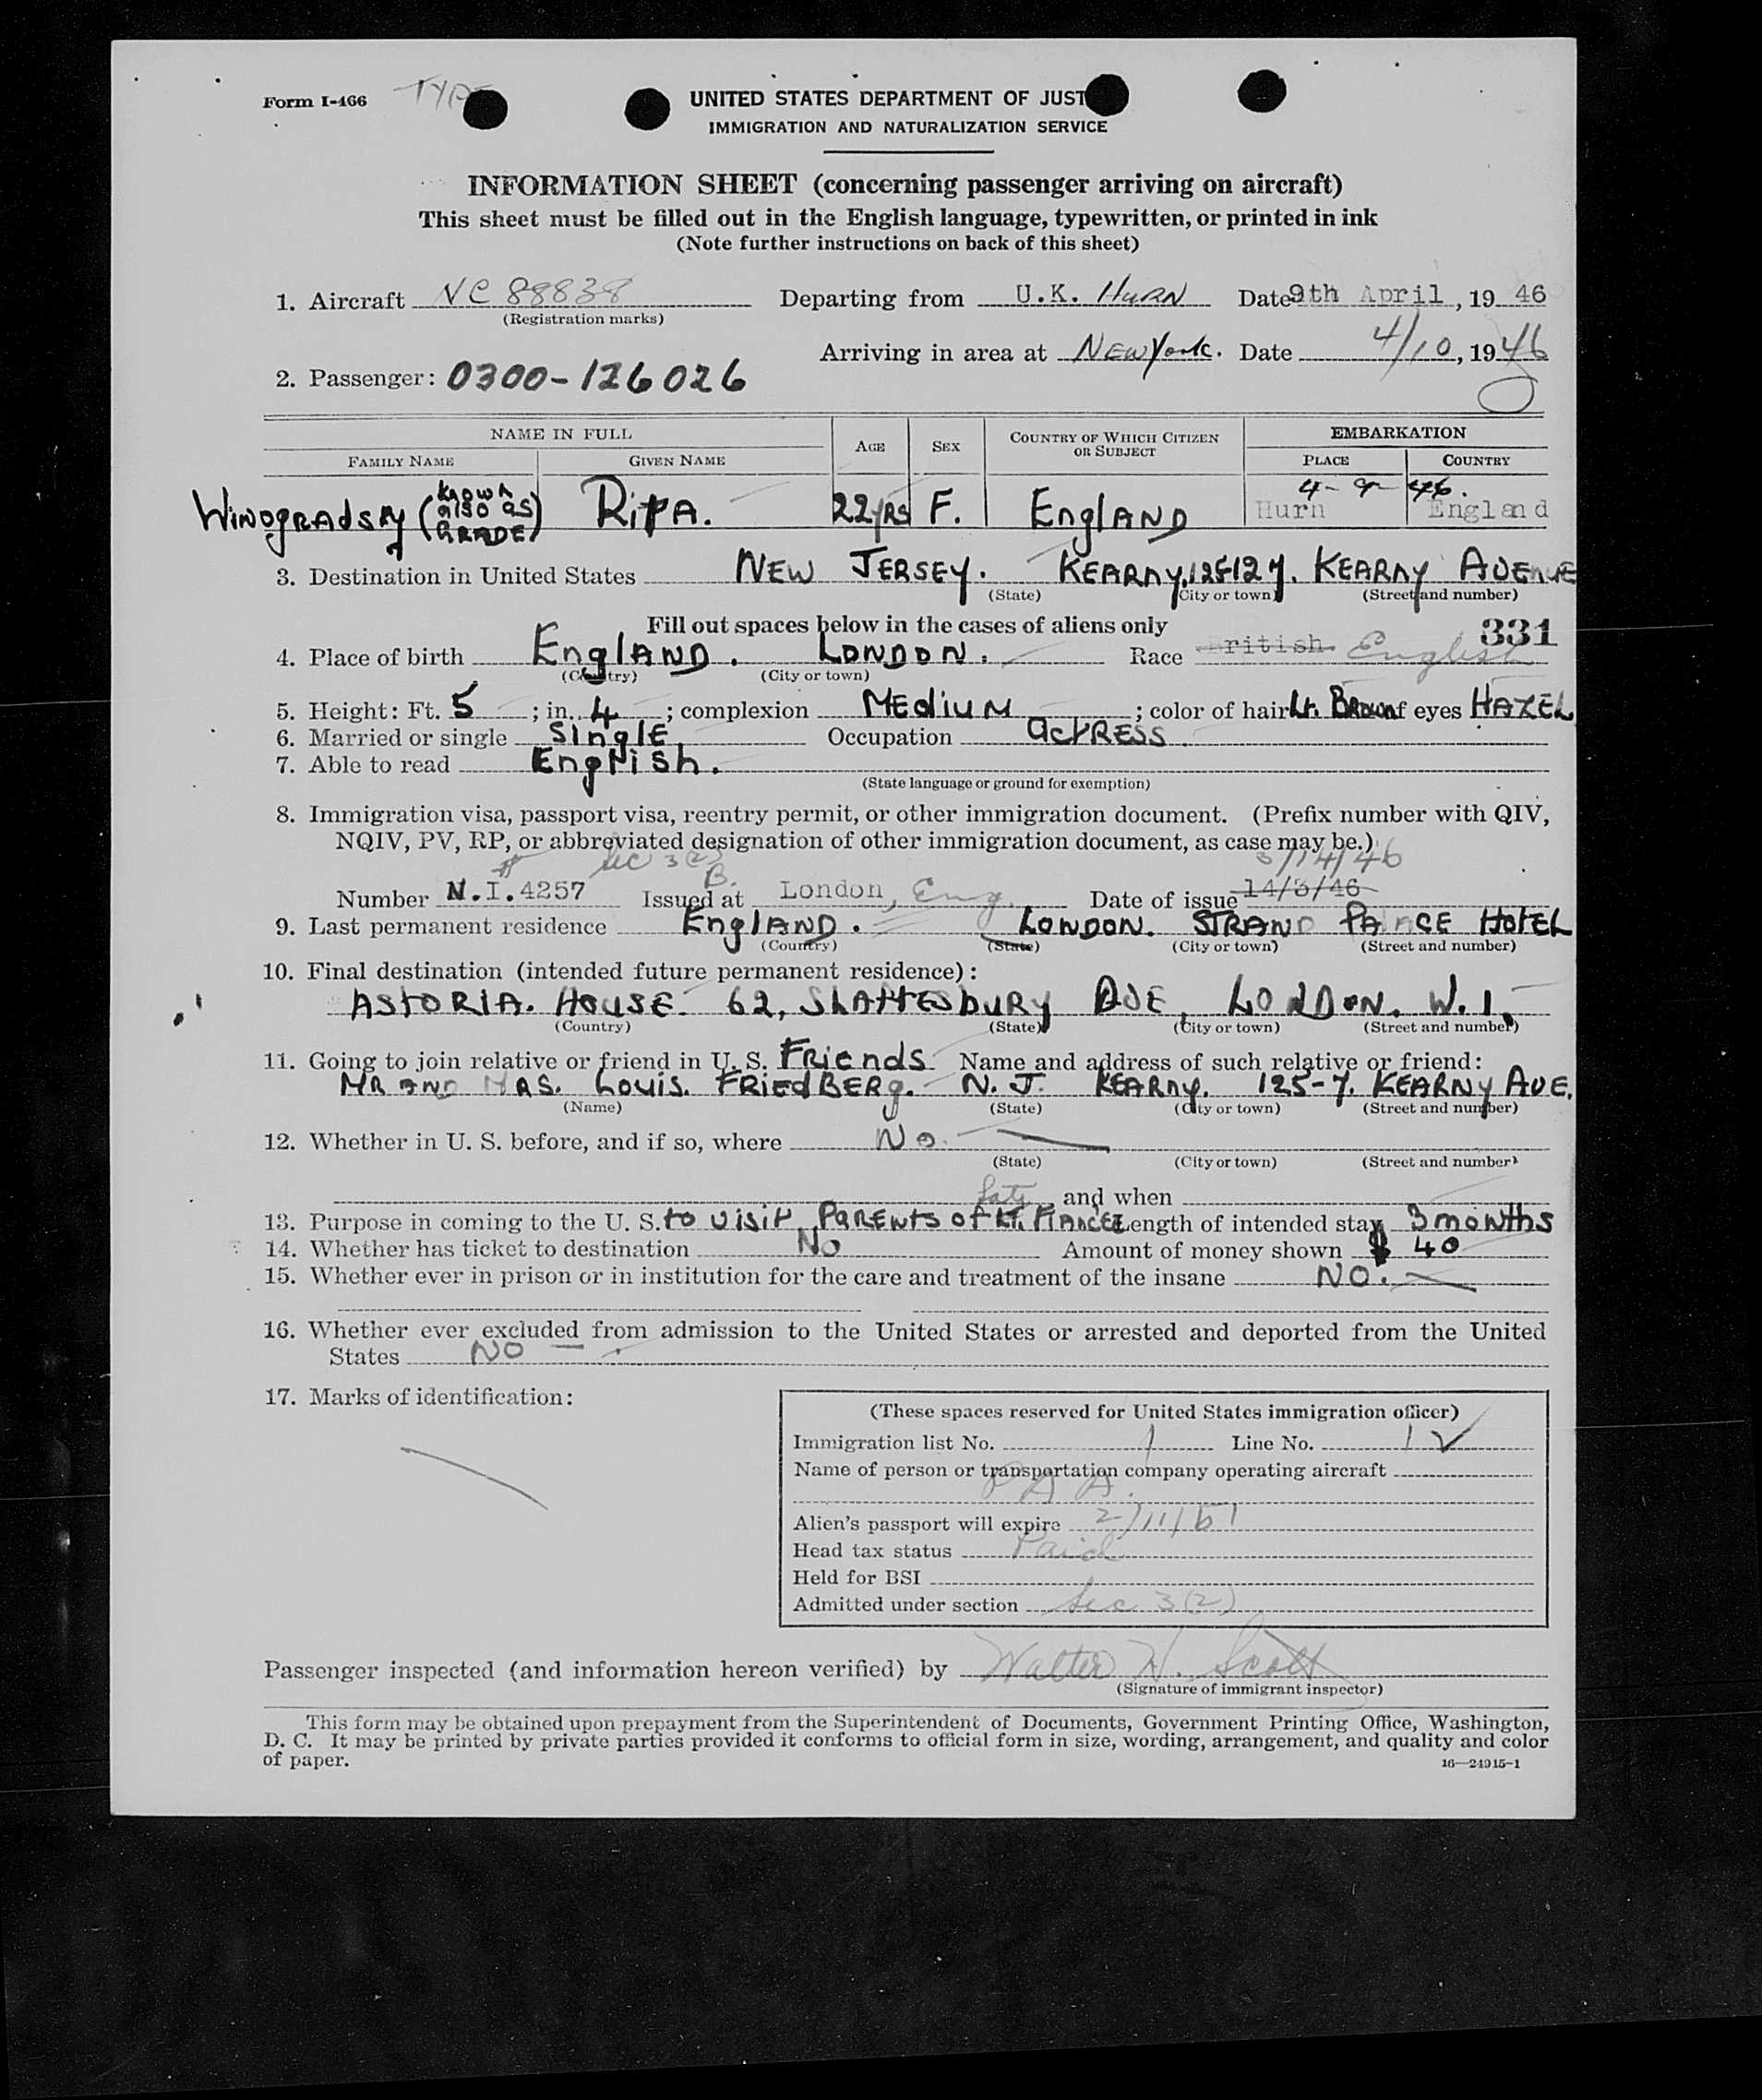 Form I-466 TYPE
UNITED STATES DEPARTMENT OF JUST
IMMIGRATION AND NATURALIZATION SERVICE
INFORMATION SHEET (concerning passenger arriving on aircraft)
This sheet must be filled out in the English language, typewritten, or printed in ink
(Note further instructions on back of this sheet)
1. Aircraft NC 88838 Departing from U.K. HURN Date 9th April, 19 46
(Registration marks)
Arriving in area at New York. Date 4/10, 1946
2. Passenger: 0300-126026
NAME IN FULL
AGE SEX COUNTRY OF WHICH CITIZEN OR SUBJECT EMBARKATION
FAMILY NAME GIVEN NAME PLACE COUNTRY
4-9-46.
WINOGRADSKY (KNOWN ALSO AS GRADE) RITA. 22 YRS F. ENGLAND Hurn England
3. Destination in United States NEW JERSEY. KEARNY. 125-127. KEARNY AVENUE
(State) (City or town) (Street and number)
Fill out spaces below in the cases of aliens only 331
4. Place of birth ENGLAND. LONDON. Race British English
(Country) (City or town)
5. Height: Ft. 5; in. 4; complexion MEDIUM; color of hair Lt. BROWN of eyes HAZEL
6. Married or single SINGLE Occupation ACTRESS.
7. Able to read English.
(State language or ground for exemption)
8. Immigration visa, passport visa, reentry permit, or other immigration document. (Prefix number with QIV,
NQIV, PV, RP, or abbreviated designation of other immigration document, as case may be.)
Sec 3(2) B. 3/14/46
Number N.I.4257 Issued at London, Eng. Date of issue 14/3/46
9. Last permanent residence ENGLAND. LONDON. STRAND PALACE HOTEL
(Country) (State) (City or town) (Street and number)
10. Final destination (intended future permanent residence):
ASTORIA. HOUSE. 62, SHAFTESBURY AVE, LONDON. W.1.
(Country) (State) (City or town) (Street and number)
11. Going to join relative or friend in U. S. FRIENDS Name and address of such relative or friend:
MR AND MRS. LOUIS. FRIEDBERG. N. J. KEARNY. 125-7. KEARNY AVE.
(Name) (State) (City or town) (Street and number)
12. Whether in U. S. before, and if so, where No.
(State) (City or town) (Street and number)
and when
13. Purpose in coming to the U. S. TO VISIT PARENTS OF FIANCE Length of intended stay 3 MONTHS
14. Whether has ticket to destination No Amount of money shown $ 40
15. Whether ever in prison or in institution for the care and treatment of the insane NO.
16. Whether ever excluded from admission to the United States or arrested and deported from the United
States NO
17. Marks of identification:
(These spaces reserved for United States immigration officer)
Immigration list No. 1 Line No. 1
Name of person or transportation company operating aircraft
PAA.
Alien's passport will expire 2/11/51
Head tax status Paid
Held for BSI
Admitted under section Sec 3(2)
Passenger inspected (and information hereon verified) by Walter H. Scott
(Signature of immigrant inspector)
This form may be obtained upon prepayment from the Superintendent of Documents, Government Printing Office, Washington,
D. C. It may be printed by private parties provided it conforms to official form in size, wording, arrangement, and quality and color
of paper. 16—24915-1